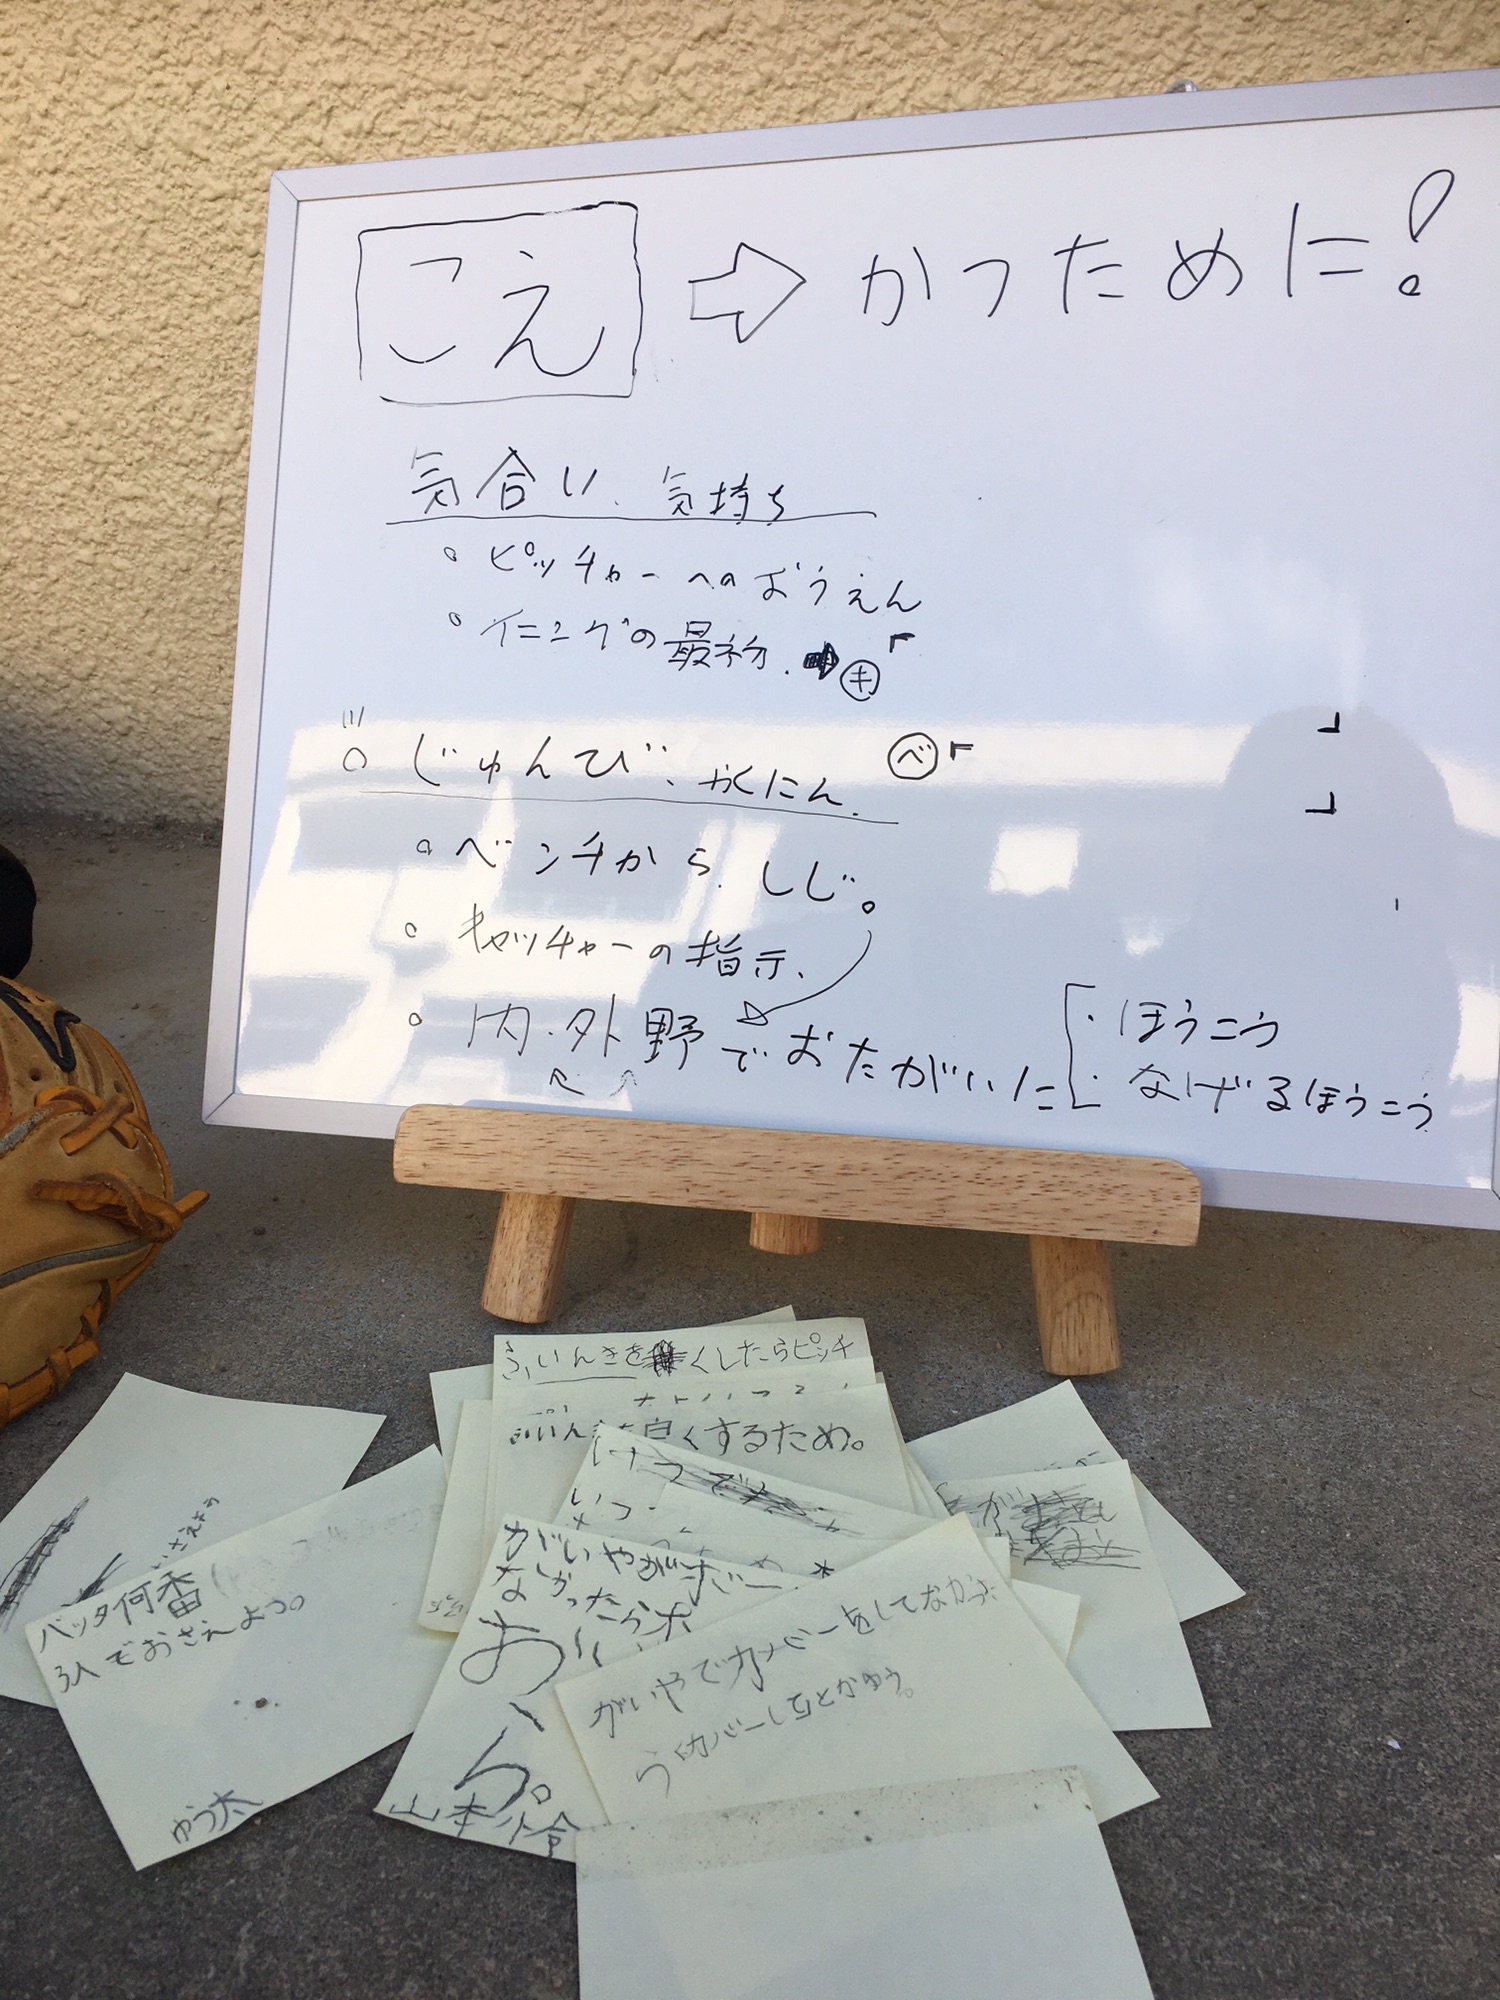 こえ ⇨ かつために!
気合い、気持ち
。ピッチャーへのおうえん
。イニングの最初、➡ ㋖「 」
じゅんび、かくにん ㋬゙「 」
。ベンチから、しじ。
。キャッチャーの指示、
。内・外野でおたがいに ・ほうこう
・なげるほうこう
ふいんきを くしたらピッチ
良くするため。
バッタ何番
でおさえよう。
ゆう太
がいやが
なかったら
お
ら。
山本
がいやでカバーをしてなかった
らカバーしてとかゆう。